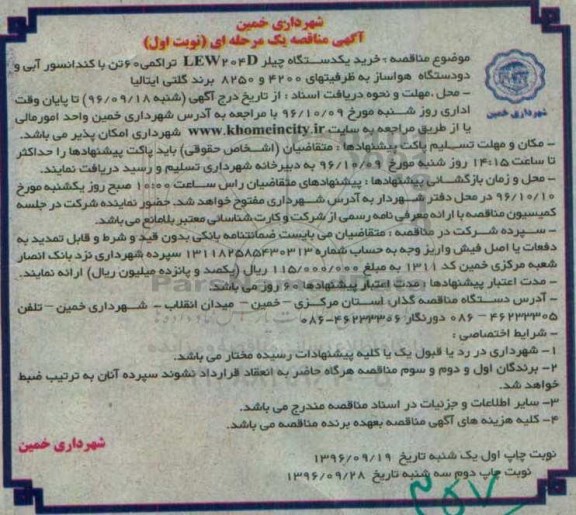 شهرداری خمین
آگهی مناقصه یک مرحله ای (نوبت اول)
موضوع مناقصه : خرید یکدستگاه چیلر LEW204D تراکمی 60تن با کندانسور آبی و
دودستگاه هواساز به ظرفیتهای 4200 و 8250 برند گلتی ایتالیا
شهرداری خمین
- محل ،مهلت و نحوه دریافت اسناد : از تاریخ درج آگهی (شنبه 96/09/18) تا پایان وقت
اداری روز شنبه مورخ 96/10/09 با مراجعه به آدرس شهرداری خمین واحد امورمالی
یا از طریق مراجعه به سایت www.khomeincity.ir شهرداری امکان پذیر می باشد.
- مکان و مهلت تسلیم پاکت پیشنهادها : متقاضیان (اشخاص حقوقی) باید پاکت پیشنهادها را حداکثر
تا ساعت 14:15 روز شنبه مورخ 96/10/09 به دبیرخانه شهرداری تسلیم و رسید دریافت نمایند.
- محل و زمان بازگشائی پیشنهادها : پیشنهادهای متقاضیان راس ساعت 10:00 صبح روز یکشنبه مورخ
96/10/10 در محل دفتر شهردار به آدرس شهرداری مفتوح خواهد شد. حضور نماینده شرکت در جلسه
کمیسیون مناقصه با ارائه معرفی نامه رسمی از شرکت و کارت شناسائی معتبر بلامانع می باشد.
- سپرده شرکت در مناقصه : متقاضیان می بایست ضمانتنامه بانکی بدون قید و شرط و قابل تمدید به
دفعات یا اصل فیش واریز وجه به حساب شماره 1311825854303130 سپرده شهرداری نزد بانک انصار
شعبه مرکزی خمین کد 1311 به مبلغ 115/000/000 ریال (یکصد و پانزده میلیون ریال) ارائه نمایند.
- مدت اعتبار پیشنهادها : مدت اعتبار پیشنهادها 60 روز می باشد.
- آدرس دستگاه مناقصه گذار: استان مرکزی - خمین - میدان انقلاب - شهرداری خمین - تلفن
46223305 - 086 دورنگار 46223306-086
- شرایط اختصاصی :
1- شهرداری در رد یا قبول یک یا کلیه پیشنهادات رسیده مختار می باشد.
2- برندگان اول و دوم و سوم مناقصه هرگاه حاضر به انعقاد قرارداد نشوند سپرده آنان به ترتیب ضبط
خواهد شد.
3- سایر اطلاعات و جزئیات در اسناد مناقصه مندرج می باشد.
4- کلیه هزینه های آگهی مناقصه بعهده برنده مناقصه می باشد.
شهرداری خمین
نوبت چاپ اول یک شنبه تاریخ 1396/09/19
نوبت چاپ دوم سه شنبه تاریخ 1396/09/28